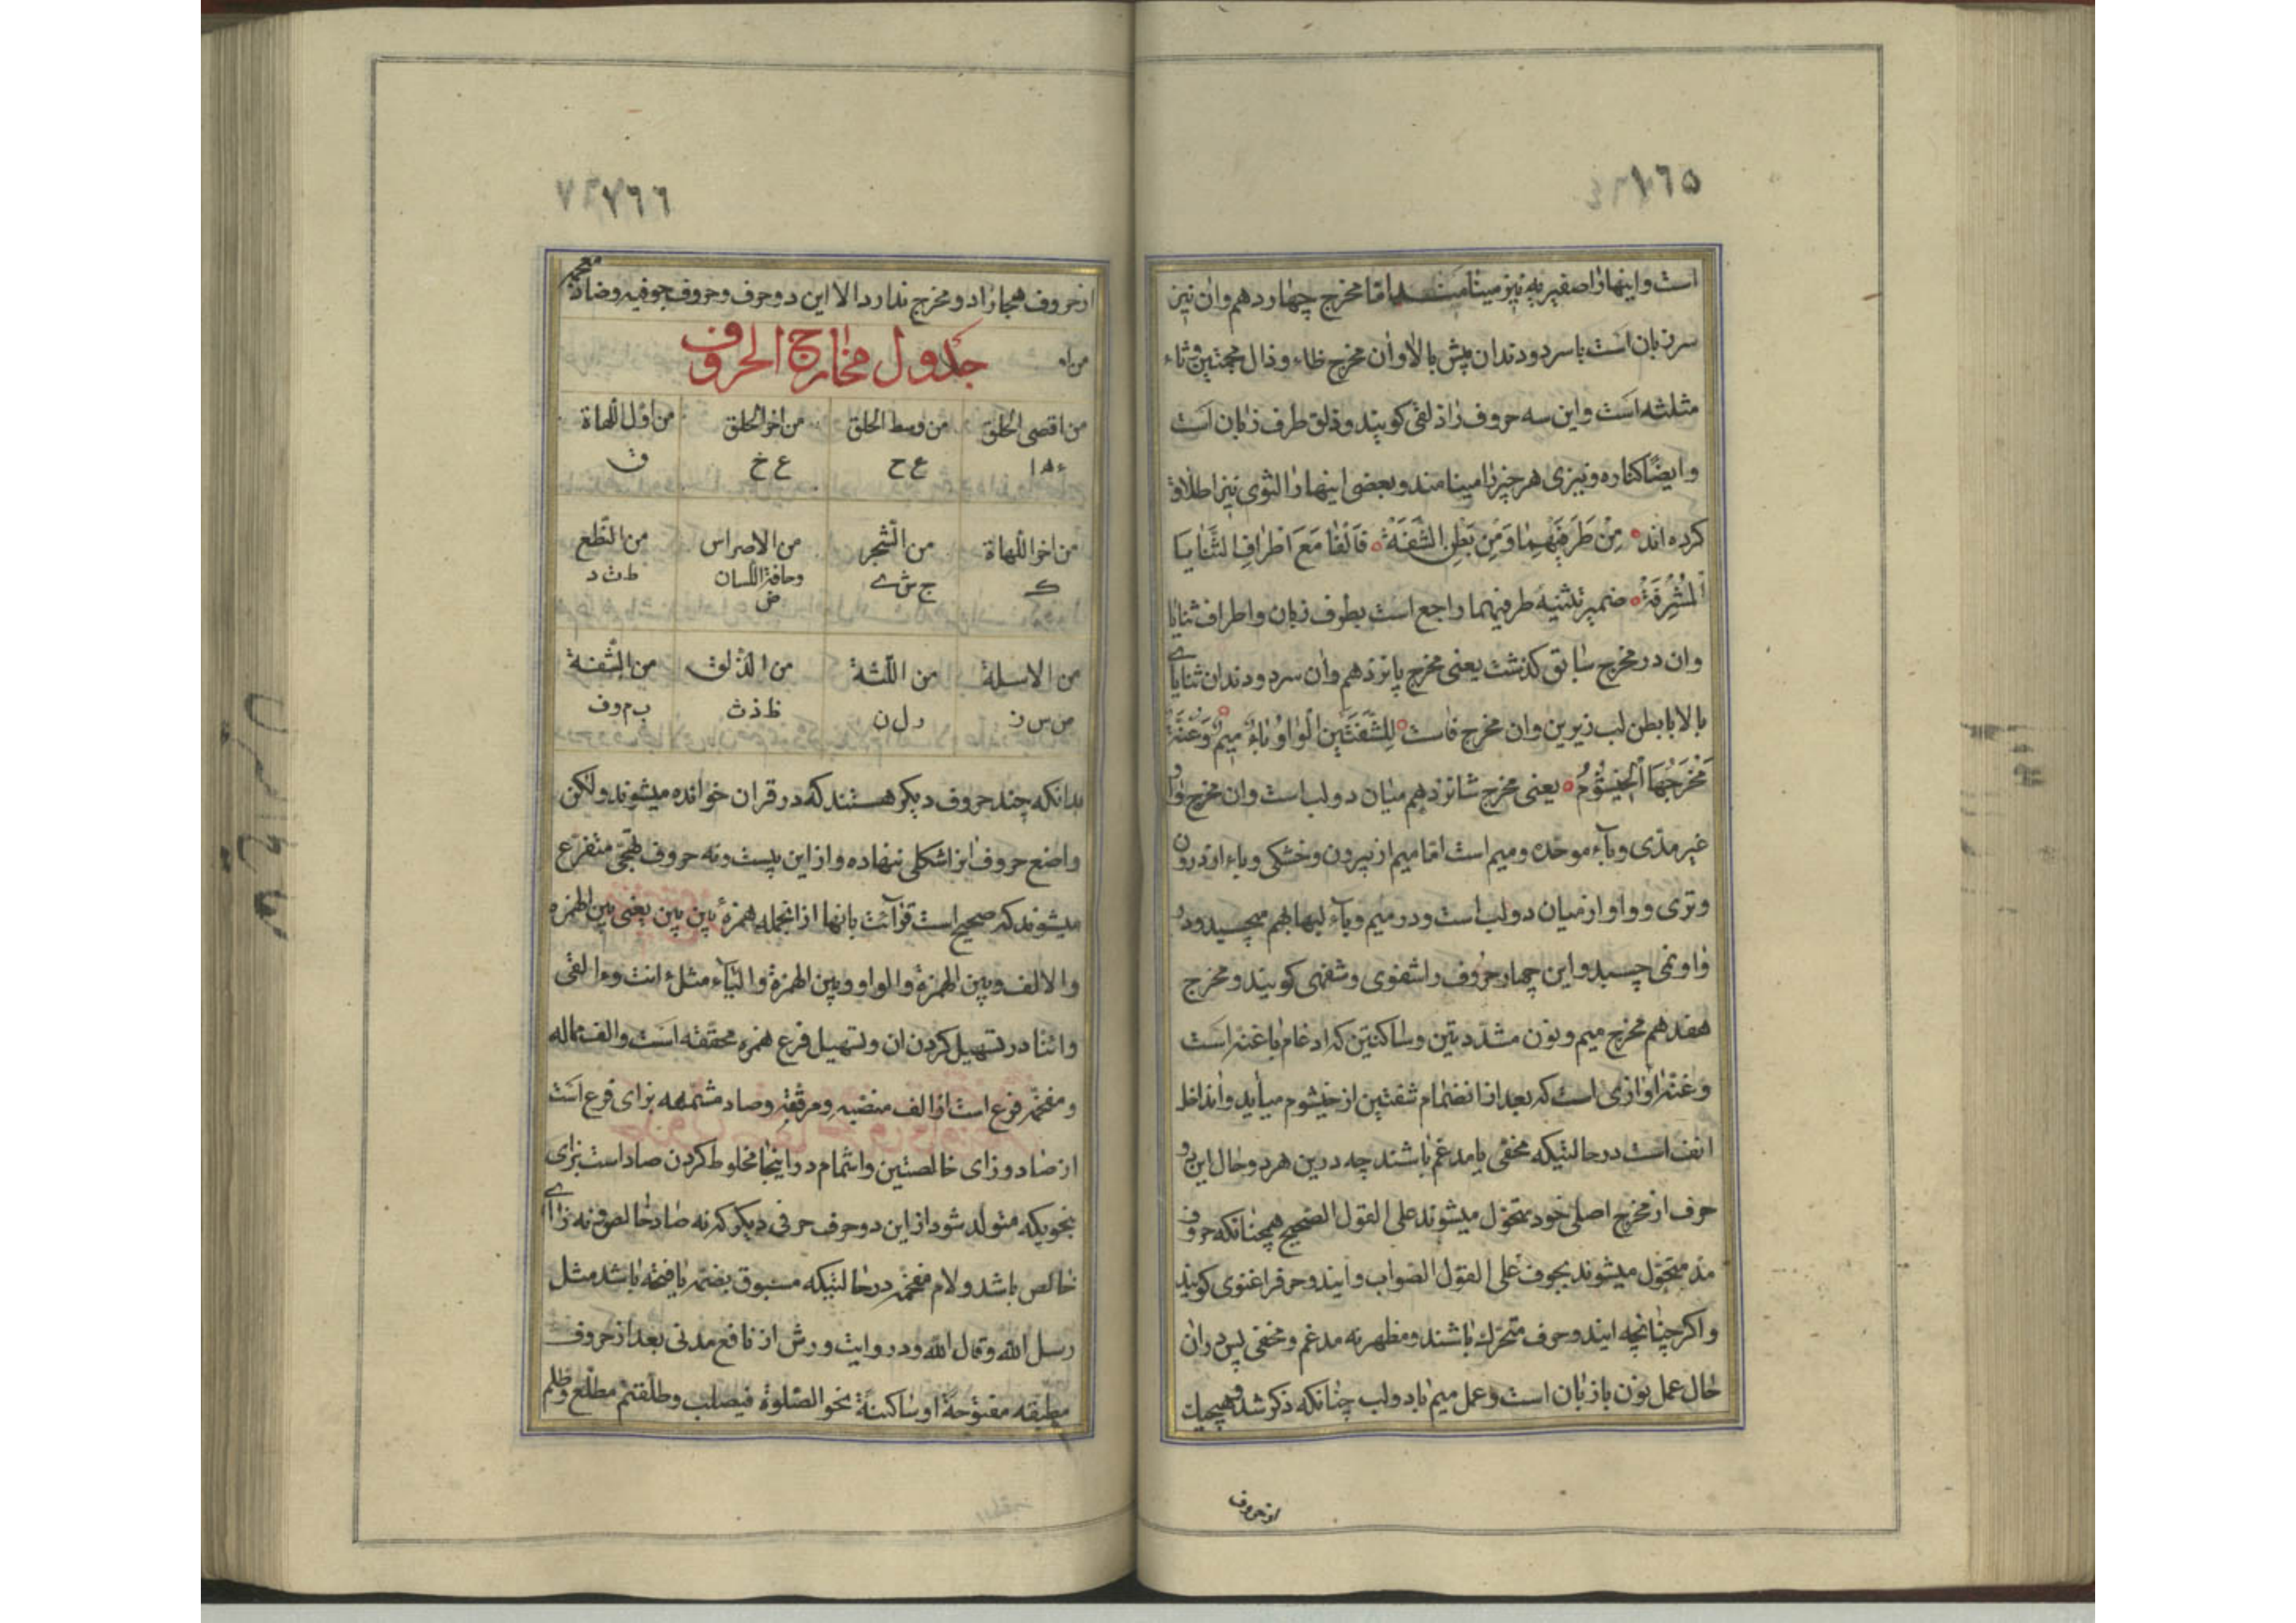 ١٦٥
است واینها را صفیریه نیز مینامند اما مخرج چهاردهم وان نیز
سر زبان است با سر دو دندان پیش بالا وان مخرج ظاء وذال معجمتین وثاء
مثلثه است واین سه حروف را ذلقی کویند وذلق طرف زبان است
وایضًا کناره وتیزی هر چیز را مینامند وبعضی اینها را لثوی نیز اطلاق
کرده اند مِنْ طَرَفَيْهِمَا وَمِنْ بَطْنِ الشَّفَةْ فَالْفَا مَعَ اطْرَافِ الثَّنَايَا
الْمُشْرِفَةْ ضمیر تثنیه طرفیهما راجع است بطرف زبان واطراف ثنایا
وان در مخرج سابق کذشت یعنی مخرج پانزدهم وان سر دو دندان ثنایای
بالا با بطن لب زیرین وان مخرج فاست لِلشَّفَتَيْنِ الْوَاوُ بَاءٌ مِيمٌ وَغُنَّةٌ
مَخْرَجُهَا الْخَيْشُومُ یعنی مخرج شانزدهم میان دو لب است وان مخرج واو
غیر مدّی وباء موحّده ومیم است امّا میم از بیرون وخشکی وباء از درون
وتری وواو از میان دو لب است ودر میم وباء لبها بهم میچسبد ودر
واو نمی چسبد واین چهار حروف را شفوی وشفهی کویند ومخرج
هفدهم مخرج میم ونون مشدّدتین وساکنتین که ادغام با غنه است
وغنه اوازی است که بعد از انضمام شفتین از خیشوم میاید وانداخل
انف است در حالتیکه مخفی یا مدغم باشند چه درین هر دو حال این دو
حرف از مخرج اصلی خود متحوّل میشوند علی القول الصحیح همچنانکه حروف
مد متحوّل میشوند بجوف علی القول الصواب واین دو حرف را غنوی کویند
واکر چنانچه این دو حرف متحرک باشند ومظهر نه مدغم ومخفی پس در ان
حال عمل نون با زبان است وعمل میم با دو لب چنانکه ذکر شد وهیچیک
از حروف
٧٦٦
از حروف هجا زاد دو مخرج ندارد الا این دو حرف وحروف جوفیه وضاد معجمه
جدول مخارج الحروف
من اقصی الحلق من وسط الحلق من اخر الحلق من اول اللهاة
ء ه ا ع ح غ خ ق
من اخر اللهاة من الشجر من الاضراس من النطع
ک ج ش ی وحافة اللسان ط ت د
ض
من الاسلة من اللثة من الذلق من الشفة
ص س ز ر ل ن ظ ذ ث ب م و ف
بدانکه چند حروف دیکر هستند که در قران خوانده میشوند ولکن
واضع حروف ابرا شکلی ننهاده واز این بیست ونه حروف تهجّی متفرّع
میشوند که صحیح است قرآئت بانها از انجمله همزهٔ بین بین یعنی بین الهمزه
والالف وبین الهمزة والواو وبین الهمزة والیآء مثل ءانت وءالقی
وائنا در تسهیل کردن ان وتسهیل فرع همزه محققه است والف ماله
ومفخمه فرع است از الف منصبه ومرققه وصاد مشمه برای فرع است
از صاد وزای خالصتین واشمام در اینجا مخلوط کردن صاد است بزای
بنحویکه متولّد شود از این دو حرف حرفی دیکر که نه صاد خالص ونه زای
خالص باشد ولام مفخمه در حالتیکه مسبوق بضمه یا فتحه باشد مثل
رسل الله وقال الله ودر روایت ورش از نافع مدنی بعد از حروف
مطبقه مفتوحةً او ساکنةً نحو الصّلوة فیصلب وطلّقتم مطلع وظلم